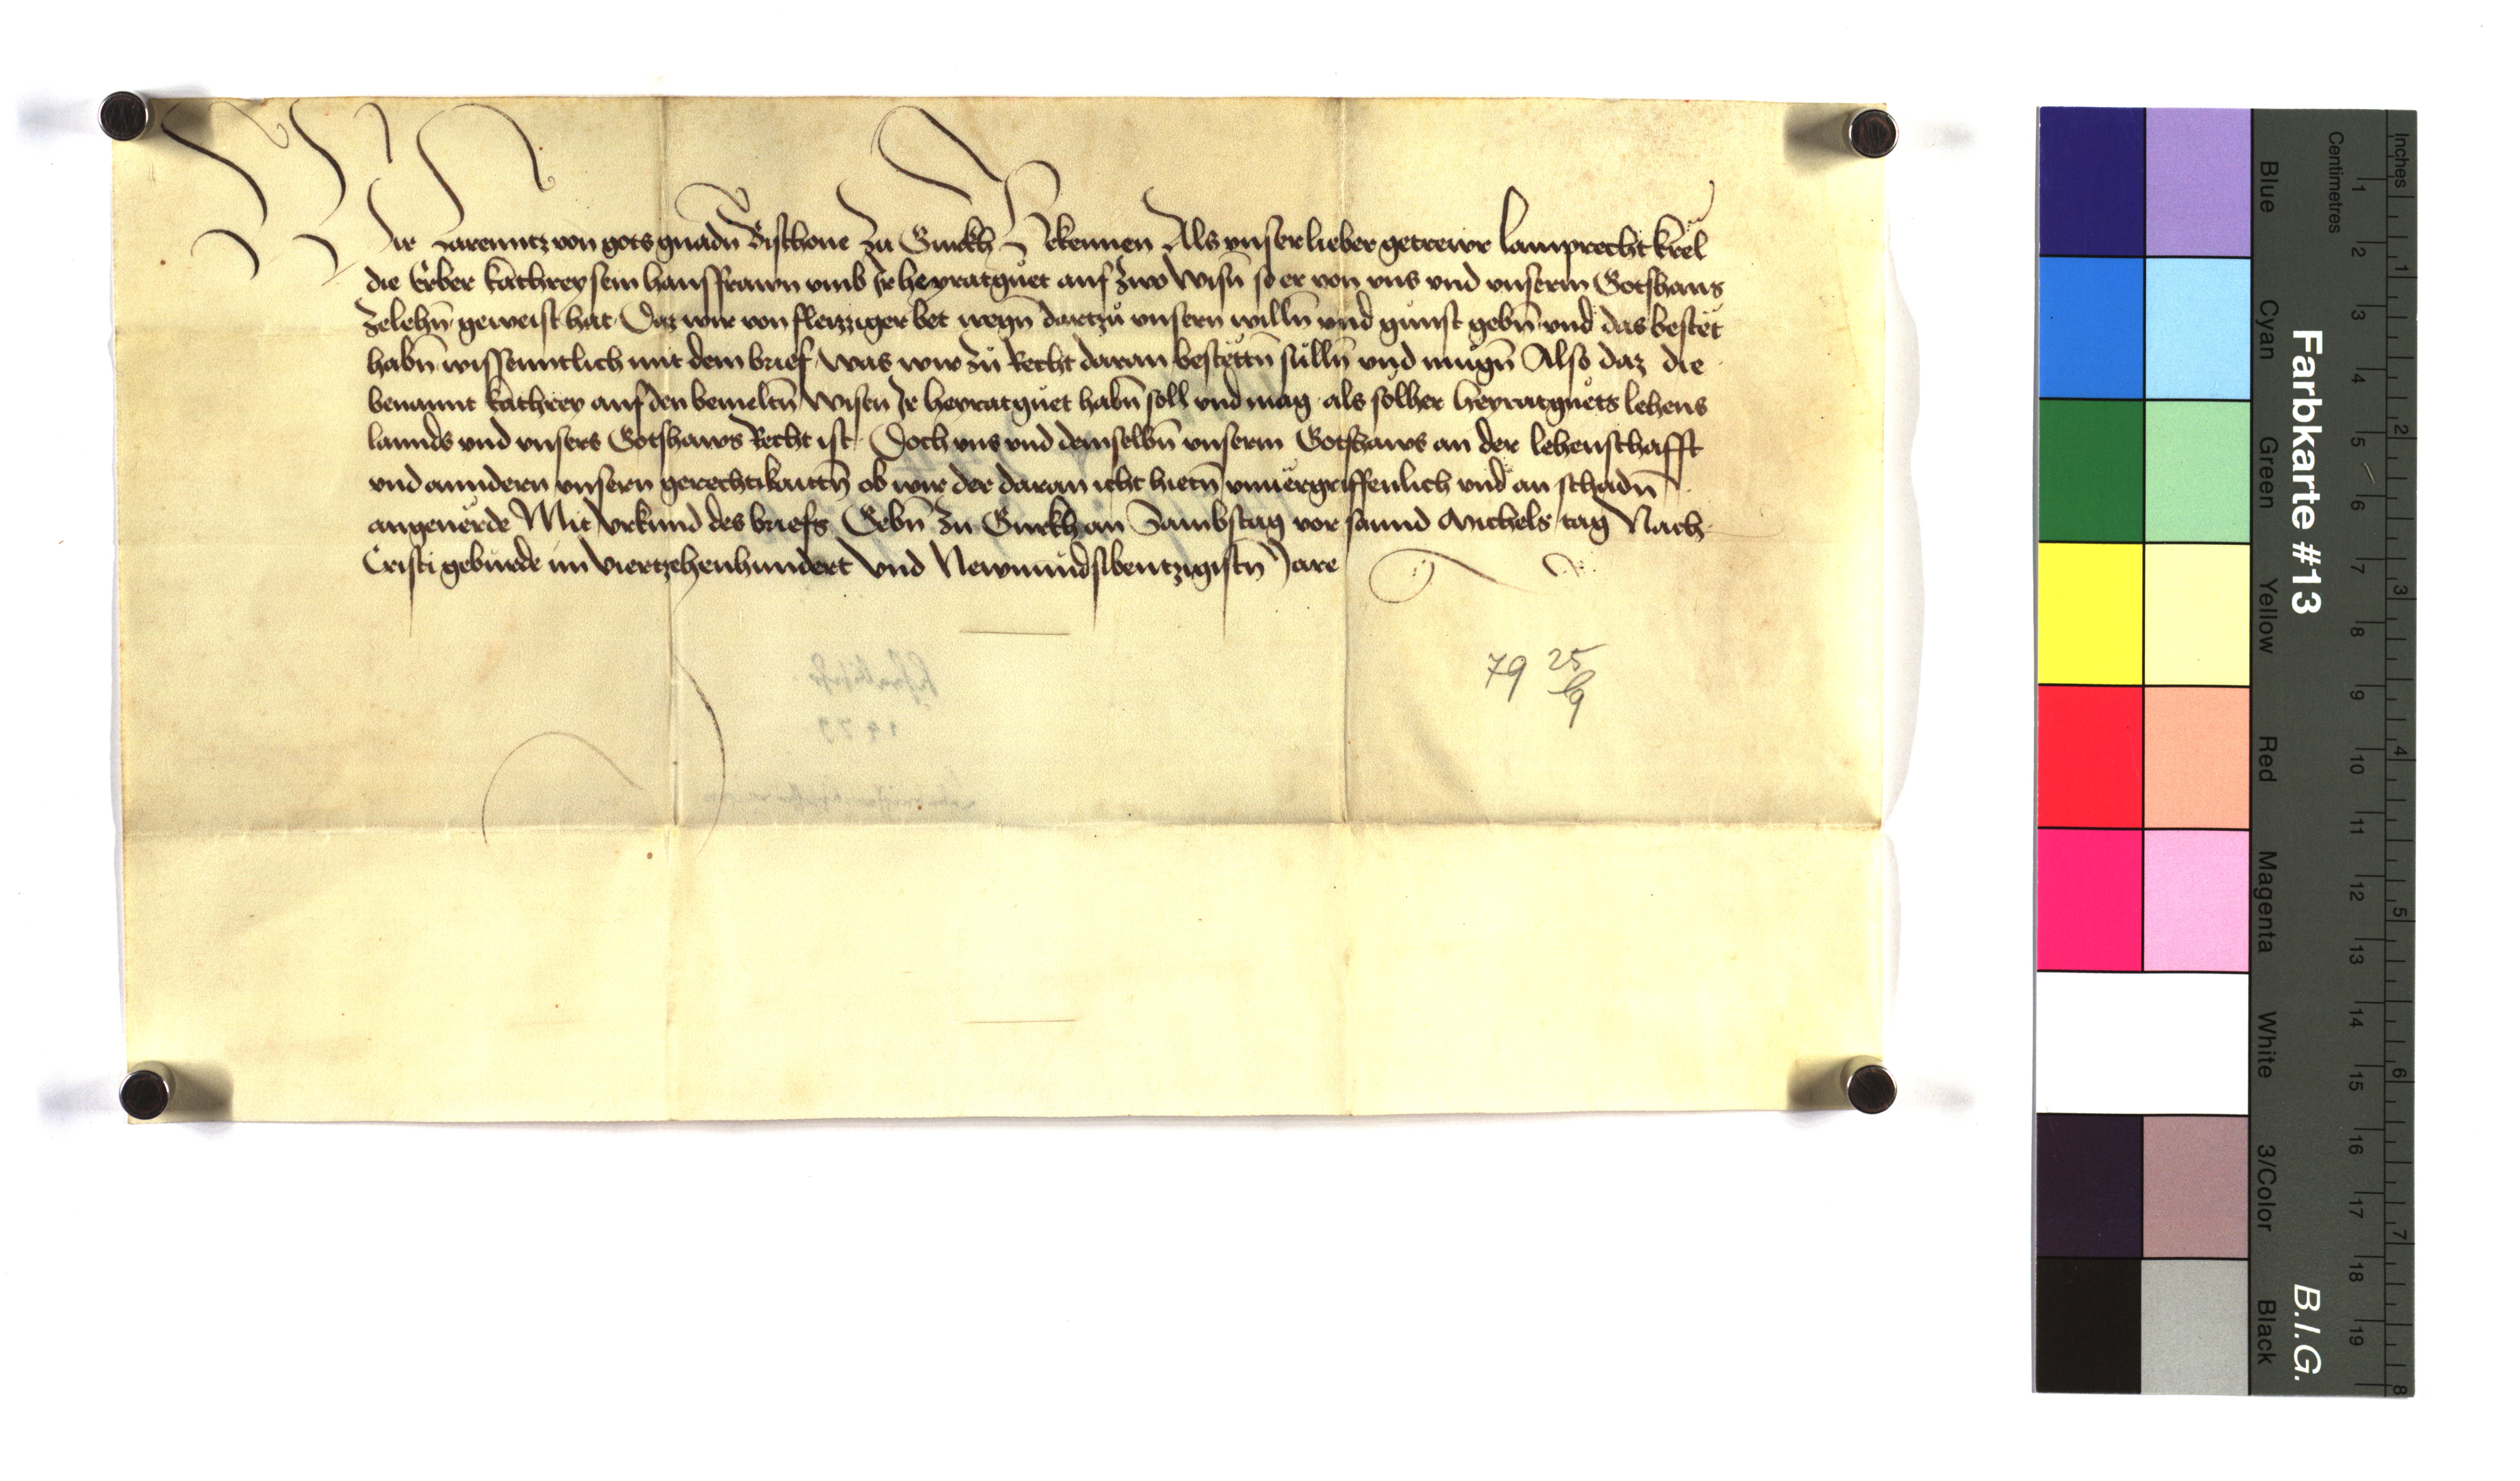 Wir Larenntz von gots gnadn̄ Bischoue Zu Gurkh Bekennen Als vnser lieber getrewr Lamprecht krel
die Erber kathrey sein hausfrawn vmb Ir heyratguet auf zwo Wisn̄ so er von vns vnd vnserm Gotshaus
Zelehn̄ geweist hat Daz wir von fleizziger bet wegn̄ dartzů vnsern willn̄ vnd gunst gebn̄ vnd das bestet
habn̄ wissenntlich mit dem brief was wir zu Recht daran bestettn̄ sulln̄ vnd mugn̄ Also daz die
benannt kathrey auf den bemeltn̄ Wisen Ir heyratguet habn̄ soll vnd mag als solher heyratguets lehens
lannds vnd vnsers Gotshaws Recht ist Doch vns vnd demselbn̄ vnserm Gotshaws an der lehenschafft
vnd anndern vnsern gerechtikaittn̄ ob wir der daran icht hietn̄ vnuergriffenlich vnd an schadn̄
angeuerde Mit vrkund des briefs Gebn̄ zu Gurkh an Sambstag vor sannd Michels tag Nach
Cristi geburde im viertzehenhundert Vnd Newnundsibentzigistn̄ Jare
79 25/9
1479
Farbkarte #13
B.I.G.
Inches
Centimetres
Blue
Cyan
Green
Yellow
Red
Magenta
White
3/Color
Black
1 2 3 4 5 6 7 8 9 10 11 12 13 14 15 16 17 18 19
1 2 3 4 5 6 7 8